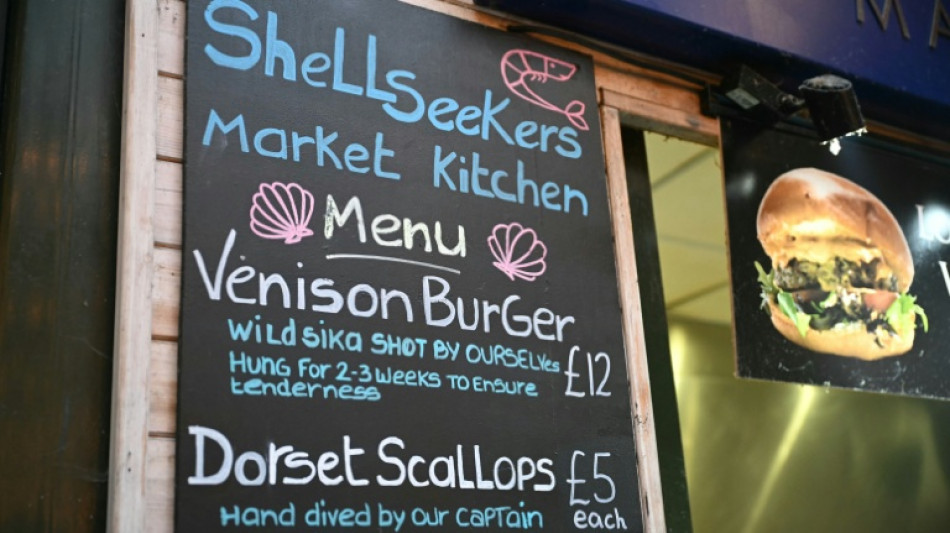 ShellSeekers
Market Kitchen
Menu
Venison Burger
Wild sika shot by ourselves
Hung for 2-3 weeks to ensure
tenderness
£12
Dorset Scallops
£5
each
Hand dived by our captain
MA